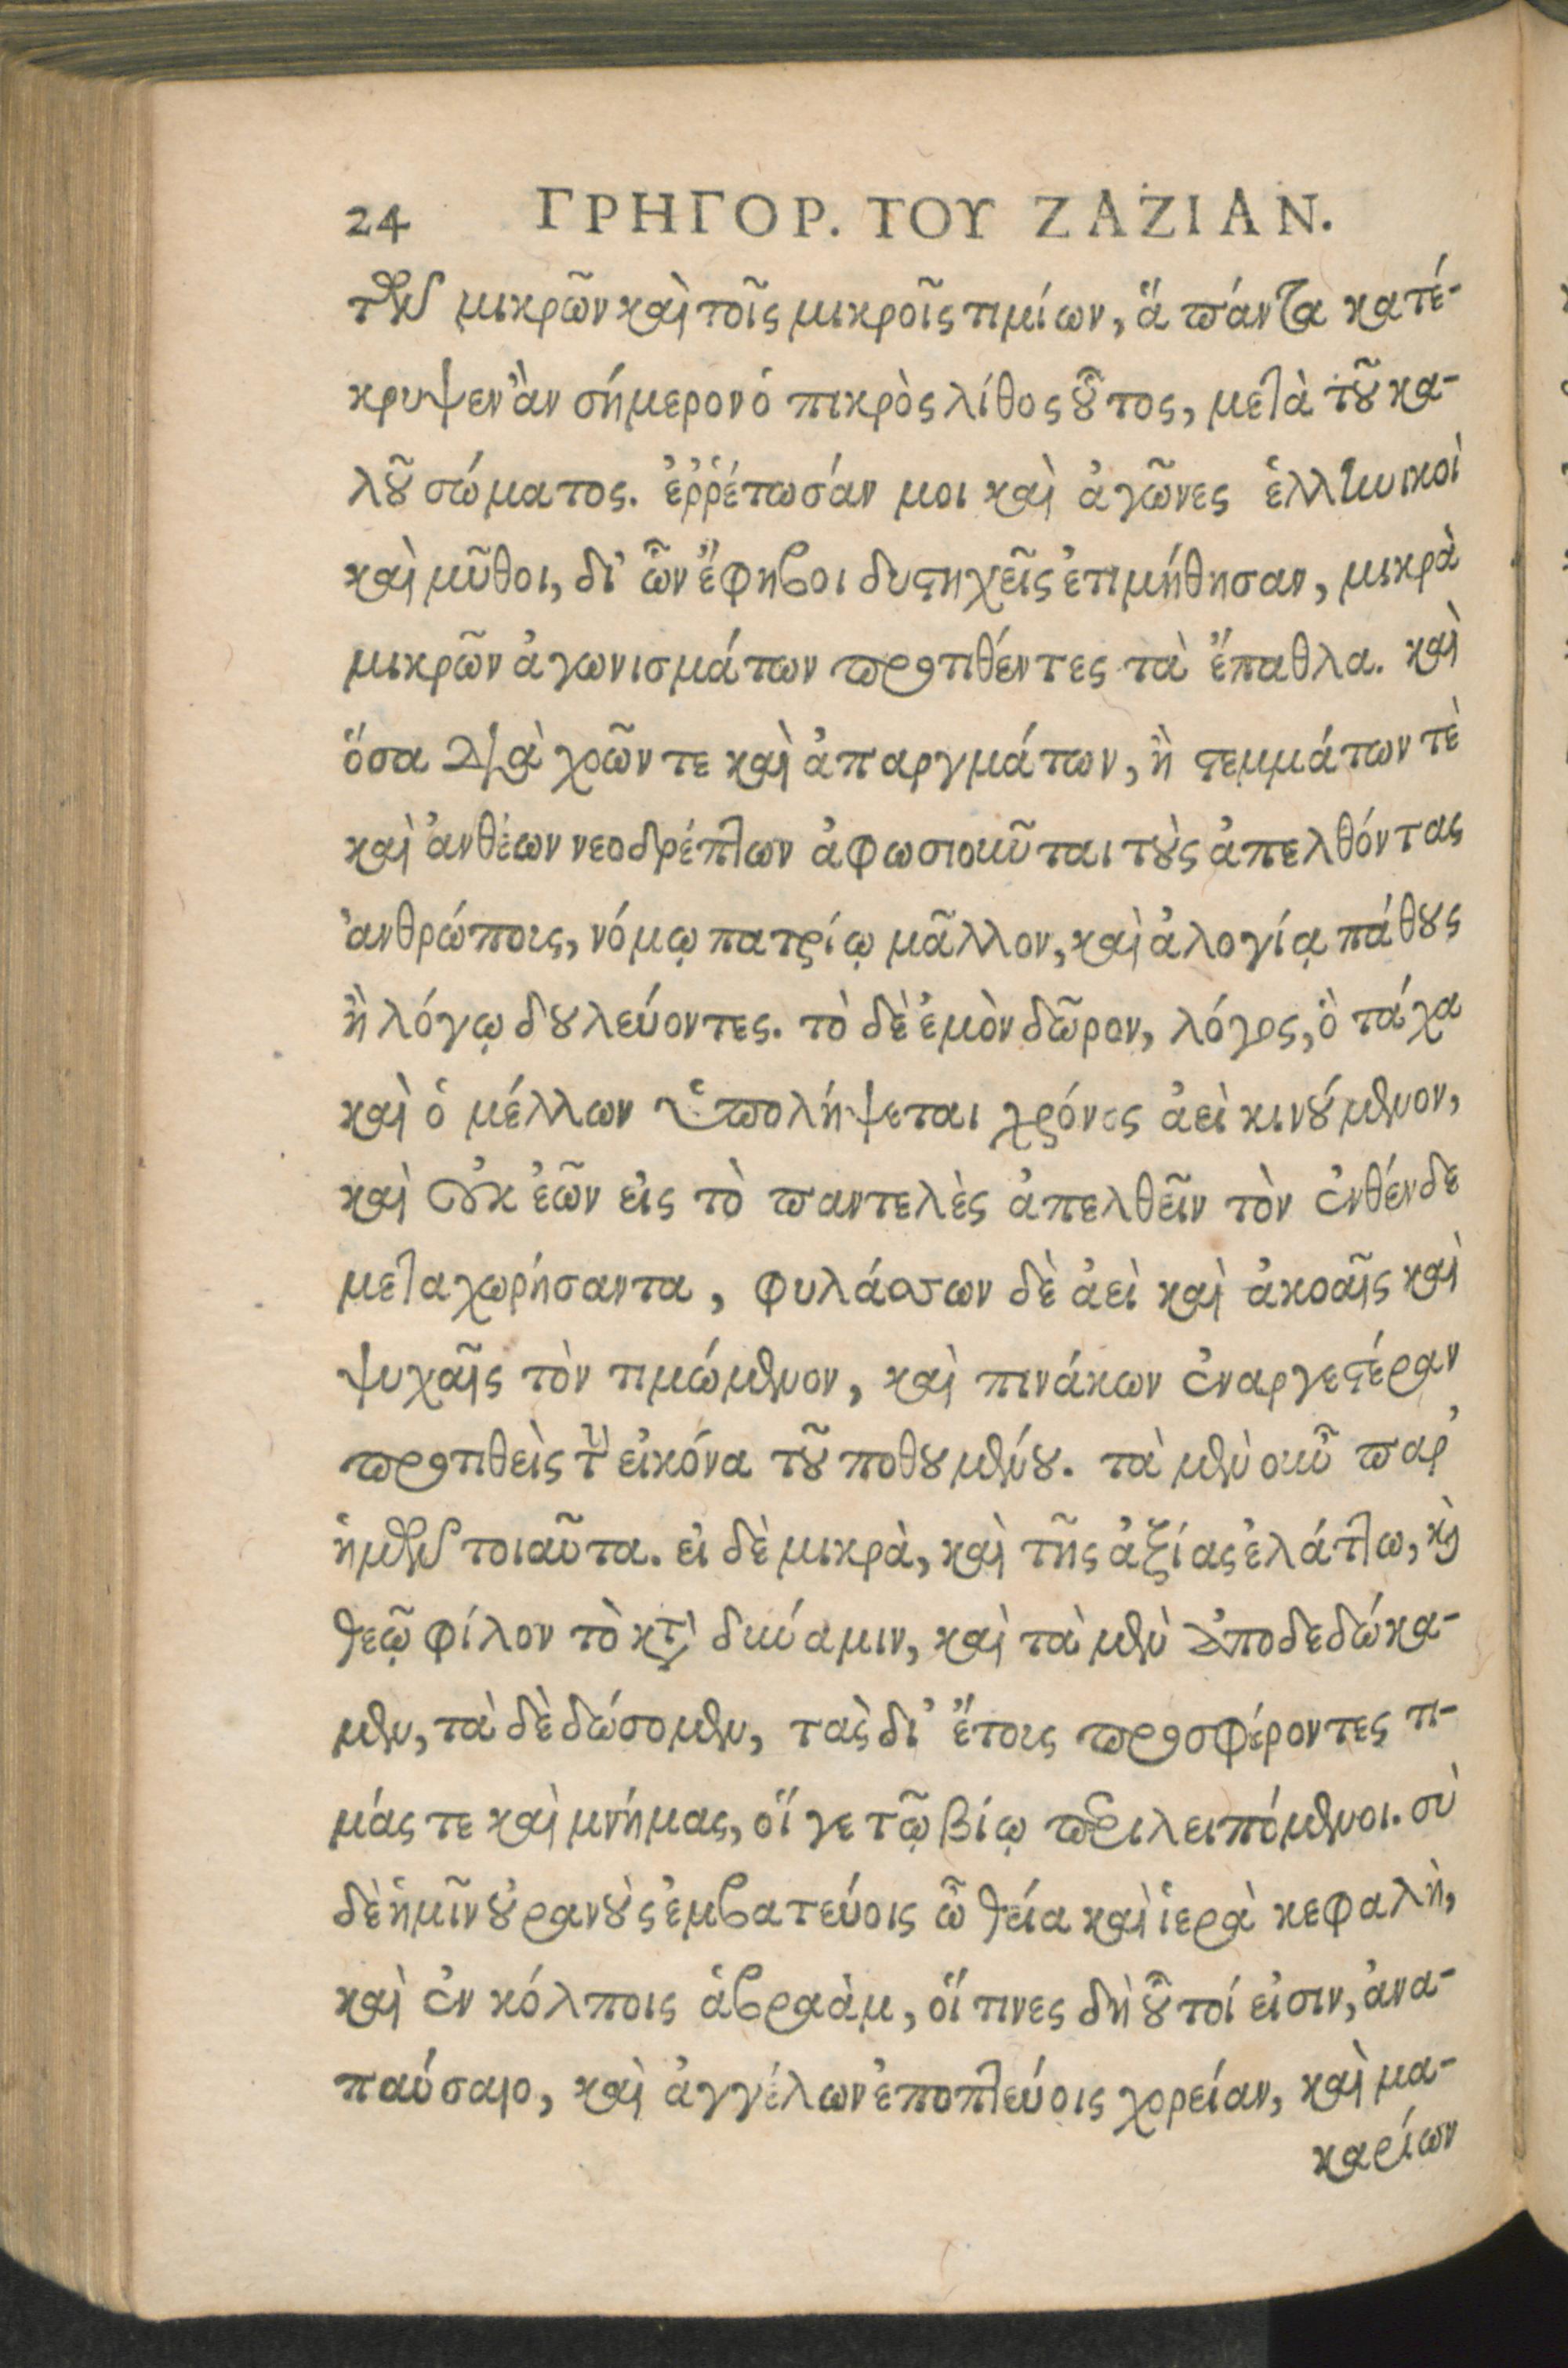 24 ΓΡΗΓΟΡ. ΤΟΥ ΖΑΖΙΑΝ.
τῶν μικρῶν καὶ τοῖς μικροῖς τιμίων, ἃ πάντα κατέ-
κρυψεν ἂν σήμερον ὁ πικρὸς λίθος οὗτος, μετὰ τοῦ κα-
λοῦ σώματος. ἐῤῥέτωσάν μοι καὶ ἀγῶνες ἑλληνικοὶ
καὶ μῦθοι, δι' ὧν ἔφηβοι δυστηχεῖς ἐτιμήθησαν, μικρὰ
μικρῶν ἀγωνισμάτων προτιθέντες τὰ ἔπαθλα. καὶ
ὅσα διὰ χοῶν τε καὶ ἀπαργμάτων, ἢ στεμμάτων τὲ
καὶ ἀνθέων νεοδρέπτων ἀφωσιοῦνται τοὺς ἀπελθόντας
ἀνθρώπους, νόμῳ πατρίῳ μᾶλλον, καὶ ἀλογίᾳ πάθους
ἢ λόγῳ δουλεύοντες. τὸ δὲ ἐμὸν δῶρον, λόγος, ὃ τάχα
καὶ ὁ μέλλων ὑπολήψεται χρόνος ἀεὶ κινούμενον,
καὶ οὐκ ἐῶν εἰς τὸ παντελὲς ἀπελθεῖν τὸν ἐνθένδε
μεταχωρήσαντα, φυλάσσων δὲ ἀεὶ καὶ ἀκοαῖς καὶ
ψυχαῖς τὸν τιμώμενον, καὶ πινάκων ἐναργεστέραν
προτιθεὶς τὴν εἰκόνα τοῦ ποθουμένου. τὰ μὲν οὖν παρ'
ἡμῶν τοιαῦτα. εἰ δὲ μικρὰ, καὶ τῆς ἀξίας ἐλάττω, καὶ
θεῷ φίλον τὸ κατὰ δύναμιν, καὶ τὰ μὲν ἀποδεδώκα-
μεν, τὰ δὲ δώσομεν, τὰς δι' ἔτους προσφέροντες τι-
μάς τε καὶ μνήμας, οἵ γε τῷ βίῳ περιλειπόμενοι. σὺ
δὲ ἡμῖν οὐρανοὺς ἐμβατεύοις ὦ θεία καὶ ἱερὰ κεφαλὴ,
καὶ ἐν κόλποις ἁβραὰμ, οἵ τινες δὴ οὗτοί εἰσιν, ἀνα-
παύσαιο, καὶ ἀγγέλων ἐποπτεύοις χορείαν, καὶ μα-
καρίων